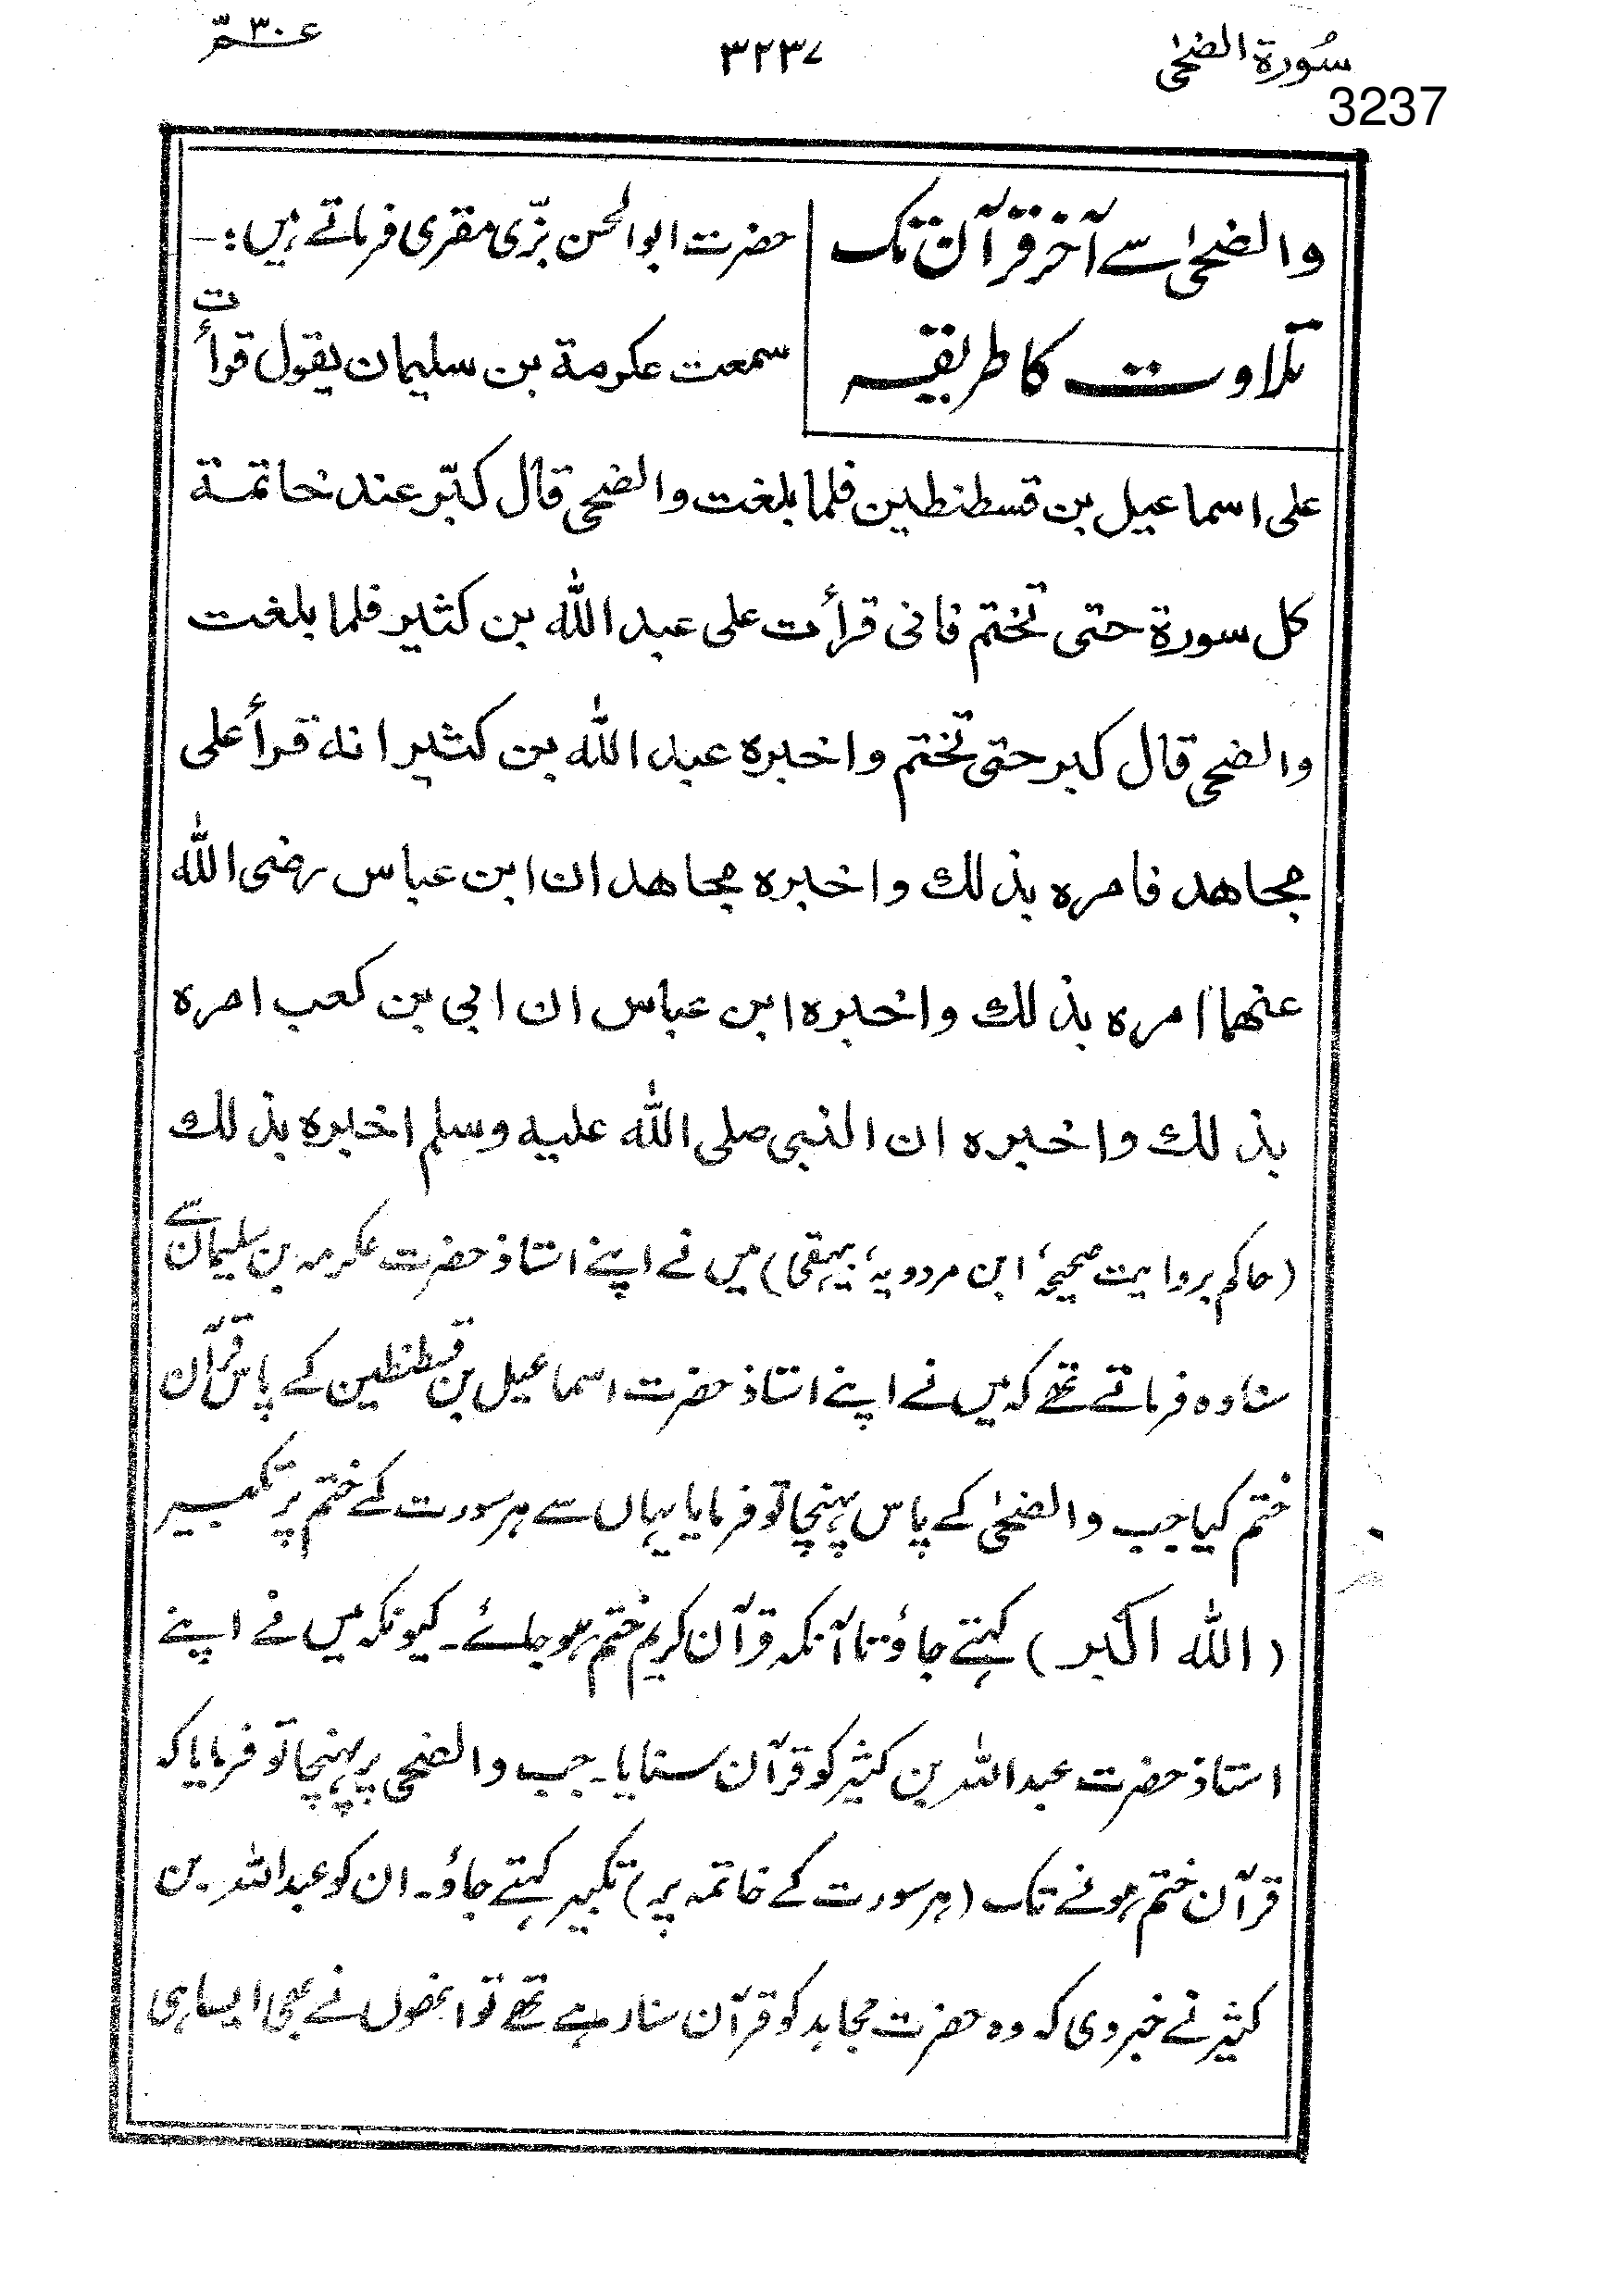 سُورة الضحٰی
۳۲۳۷
عـمّ ۳۰
3237
والضحیٰ سے آخر قرآن تک
تلاوت کا طریقہ
حضرت ابوالحسن بزّی مقری فرماتے ہیں :—
سمعت عکرمة بن سلیمان یقول قرأت
علی اسماعیل بن قسطنطین فلما بلغت والضحی قال کبّر عند خاتمة
کل سورة حتی تختم فانی قرأت علی عبد اللہ بن کثیر فلما بلغت
والضحی قال کبر حتی تختم واخبرہ عبد اللہ بن کثیر انہ قرأ علی
مجاھد فامرہ بذلک واخبرہ مجاھد ان ابن عباس رضی اللہ
عنھما امرہ بذلک واخبرہ ابن عباس ان ابی بن کعب امرہ
بذلک واخبرہ ان النبی صلی اللہ علیہ وسلم اخبرہ بذلک
(حاکم بروایت صحیحہ، ابن مردویہ، بیہقی) میں نے اپنے استاذ حضرت عکرمہ بن سلیمان سے
سنا وہ فرماتے تھے کہ میں نے اپنے استاذ حضرت اسماعیل بن قسطنطین کے پاس قرآن
ختم کیا جب والضحیٰ کے پاس پہنچا تو فرمایا یہاں سے ہر سورت کے ختم پر تکبیر
(اللہ اکبر) کہتے جاؤ تا آنکہ قرآن کریم ختم ہو جائے۔ کیونکہ میں نے اپنے
استاذ حضرت عبداللہ بن کثیر کو قرآن سنایا۔ جب والضحی پر پہنچا تو فرمایا کہ
قرآن ختم ہونے تک (ہر سورت کے خاتمہ پر) تکبیر کہتے جاؤ۔ ان کو عبداللہ بن
کثیر نے خبر دی کہ وہ حضرت مجاہد کو قرآن سنا رہے تھے تو انھوں نے بھی ایسا ہی